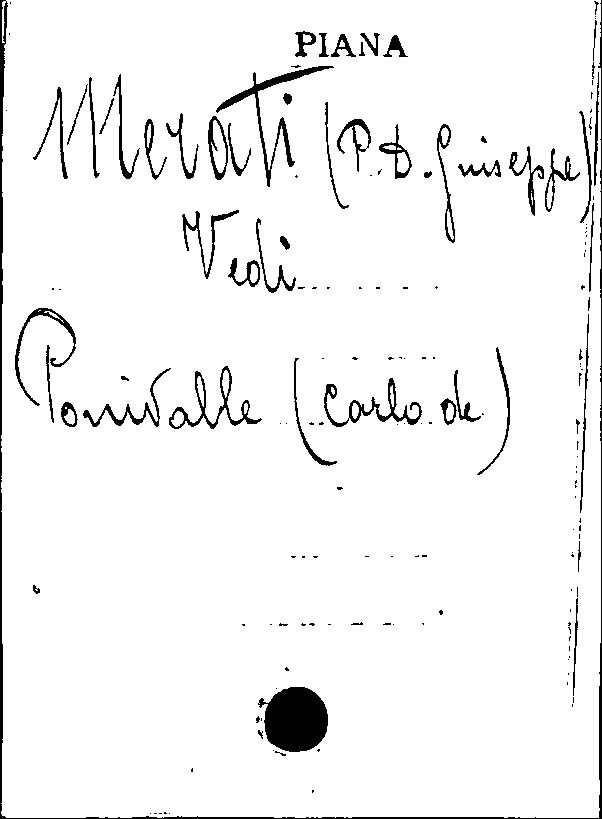 PIANA
Merati (P. D. Giuseppe)
Vedi
Ponivalle (Carlo de)